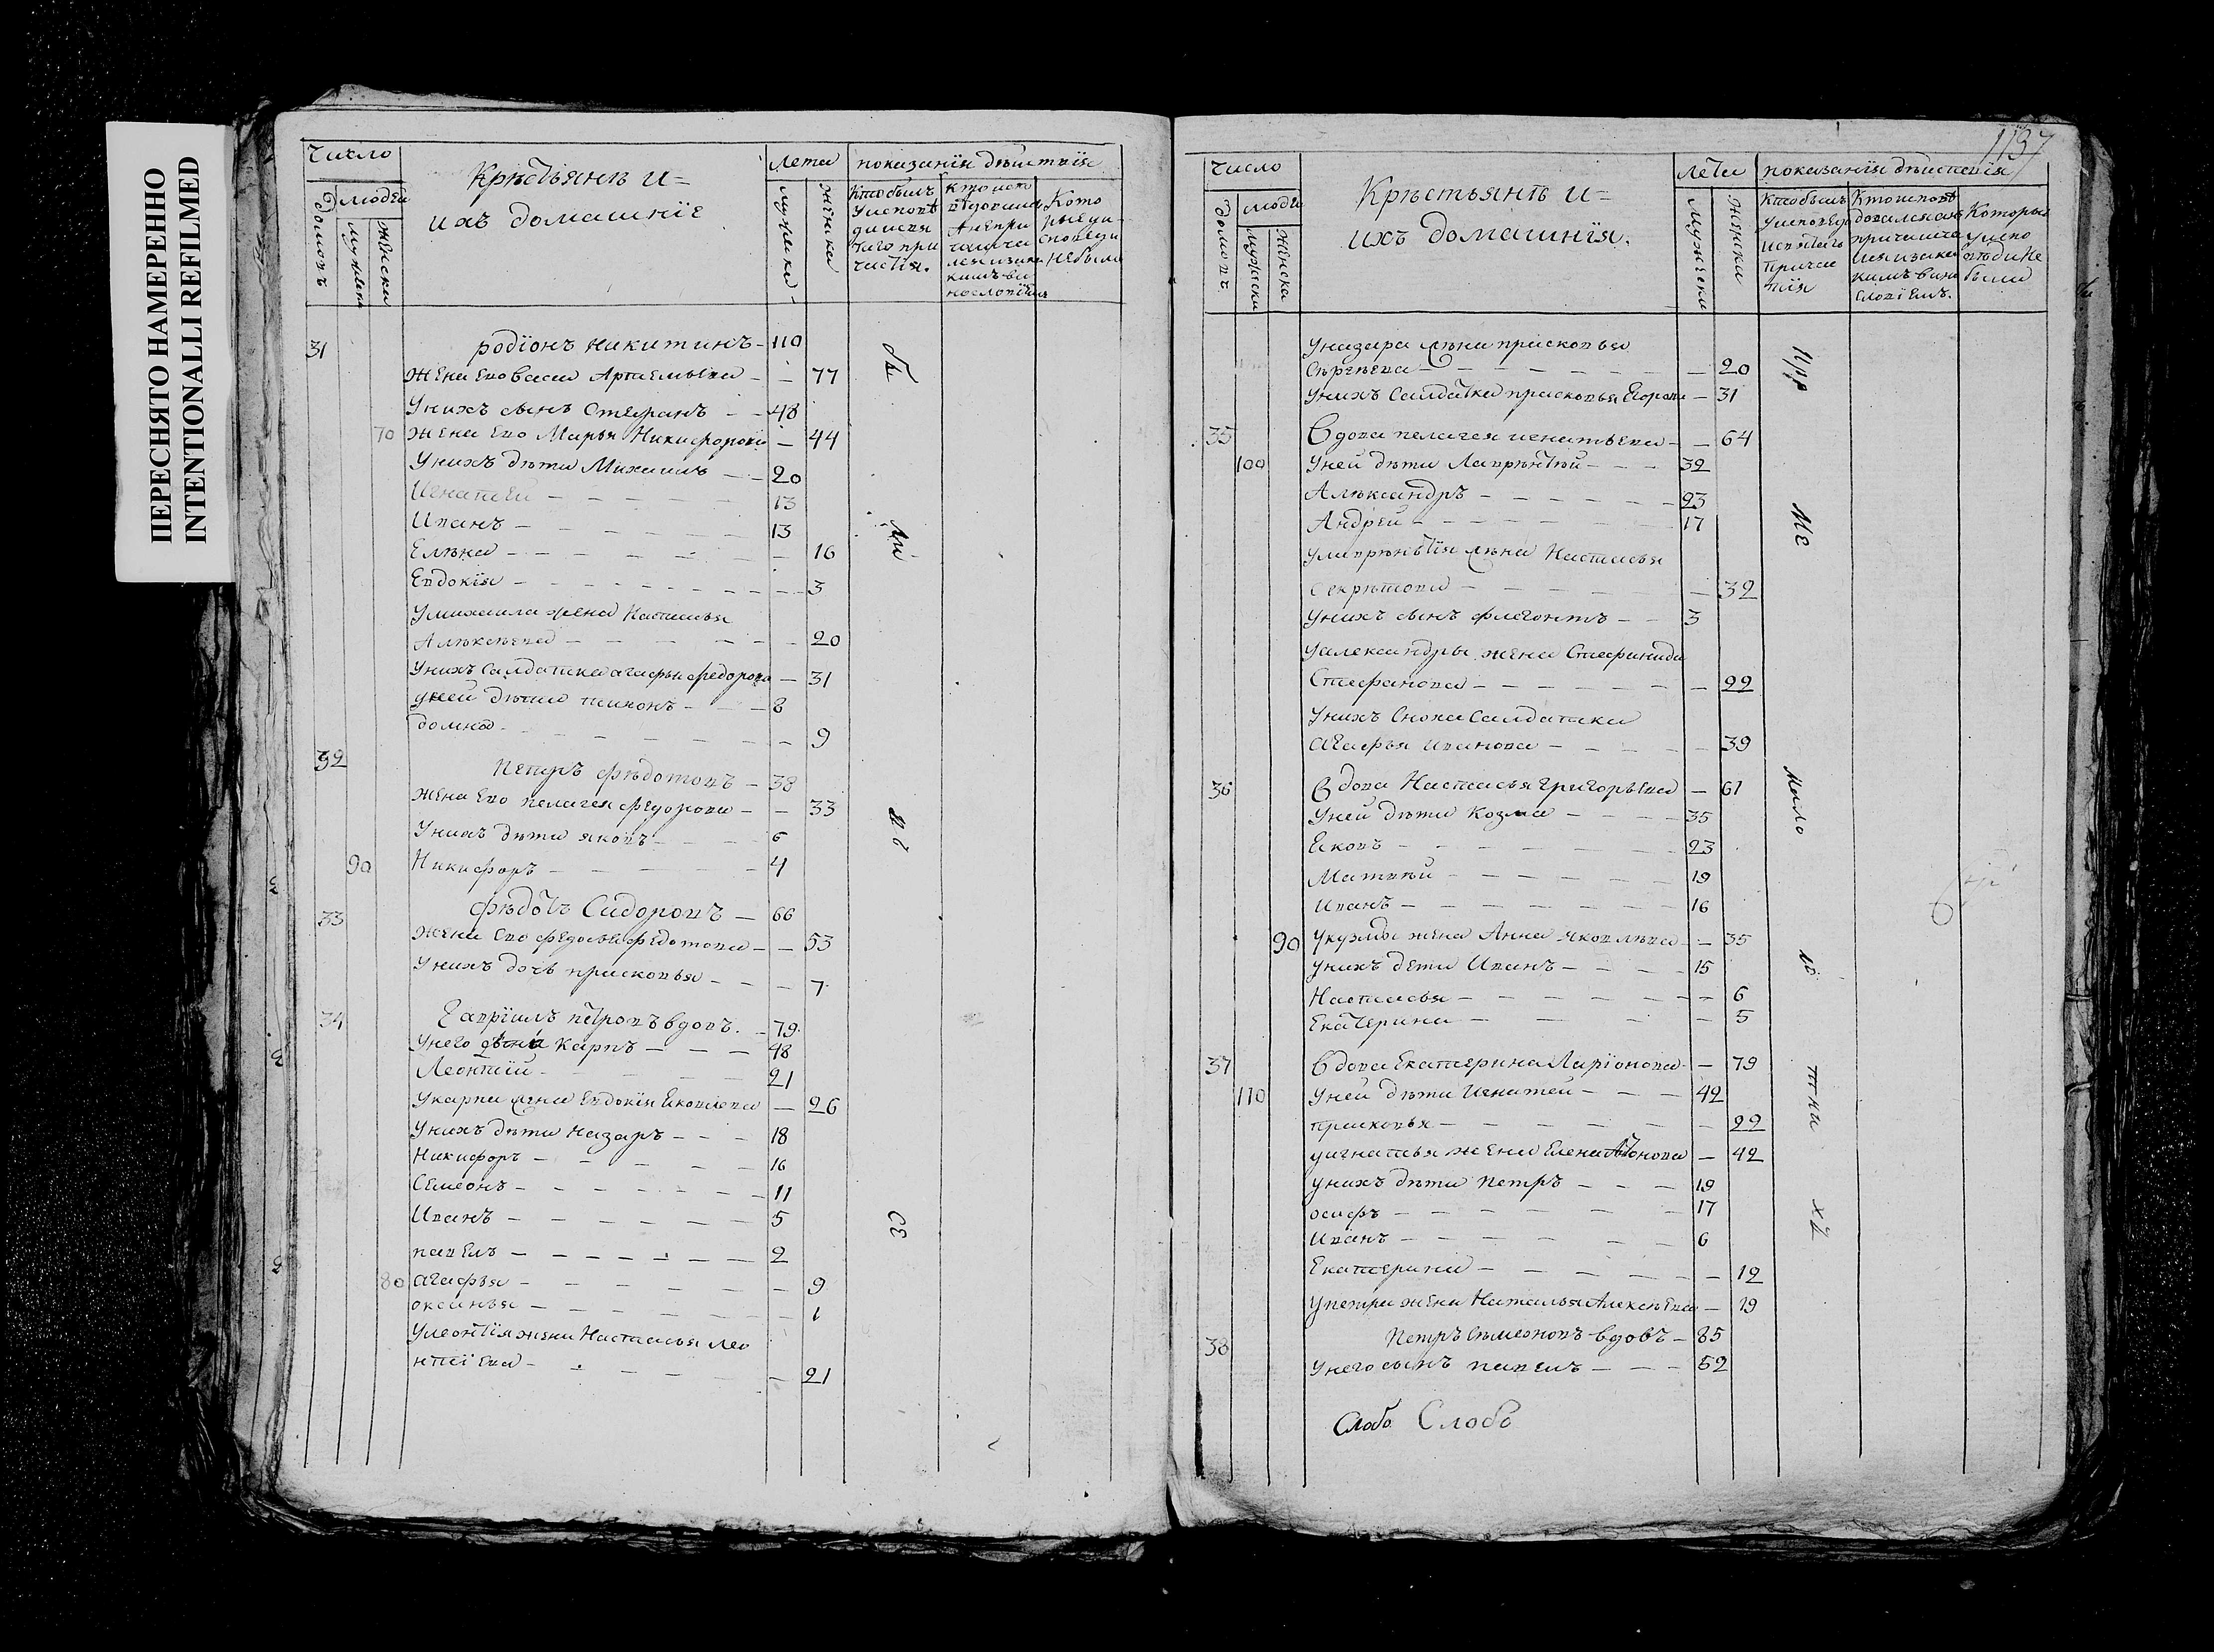 ПЕРЕСНЯТО НАМЕРЕННО
INTENTIONALLI REFILMED
Число
людей
домовъ
мужеска
женска
Крѣстьянѣ и=
ихъ домашнїе
лета
мужеска
женска
показанїя дѣиствїя
31 родїонъ никитинъ - 110
жена ево Васса Артемьева - - 77
У нихъ сынъ Стефанъ - - 48
70 жена ево Марья Никифорова - 44
У нихъ дѣти Михаилъ - - 20
Игнатеи - 13
Иванъ - 13
Елѣна - 16
Евдокїя - 3
У михаила жена Настасья
Алѣксѣева - 20
У нихъ Салдатка агафья федорова - 31
У ней дѣти тихонъ - 8
домна - 9
32 Петръ фѣдотовъ - 38
жена ево пелагея федорова - - 33
У нихъ дѣти яковъ - 6
90 Никифоръ - 4
33 фѣдотъ Сидоровъ - 66
жена ево федосья федотова - - 53
У нихъ дочь прасковья - - - 7
34 Гаврїилъ петровъ вдовъ. - 79
У него дѣти Карпъ - - - 48
Леонтїи - 21
У карпа жена Евдокїя Яковлева - 26
У нихъ дѣти назаръ - - - 18
Никифоръ - 16
Семеонъ - 11
Иванъ - 5
павелъ - 2
80 агафья - 9
оксинья - 1
У леонтїя жена Настасья лео
нтїева - 21
1137
Число
люде
домовъ
мужеска
женска
Крѣстьянѣ и=
ихъ домашнїя.
лета
мужеска
женска
показанїя дѣиствїя
У назара жена прасковья
Сѣргѣева - 20
У нихъ Салдатка прасковья Егорова - 31
35 Вдова пелагея игнатьева - - 64
100 У ней дѣти Лаврѣнтѣй - - - 32
Алѣксандръ - 23
Андрей - 17
У лаврѣнтїя жена Настасья
секрѣтова - 32
У нихъ сынъ флегонтъ - - 3
У александра жена Стефанида
Стефанова - 22
У нихъ Сноха Салдатка
агафья иванова - 39
36 Вдова Настасья григорьева - 61
У ней дѣти Козма - 35
Яковъ - 23
Матвѣй - 19
Иванъ - 16
90 У кузмы жена Анна яковлѣва - - 35
У нихъ дети Иванъ - 15
Настасья - 6
Екатерина - 5
37 Вдова Екатерина Ларїонова - - 79
110 У ней дѣти Игнатей - - - 42
прасковья - 22
У игнатья жена Елена Антонова - 42
У нихъ дѣти Петръ - - - 19
осифъ - 17
Иванъ - 6
Екатерина - 12
У петра жена Наталья Алексѣева - 19
38 Петръ Сѣмеоновъ вдовъ - 85
У него сынъ павелъ - - - 52
Слобо Слобо